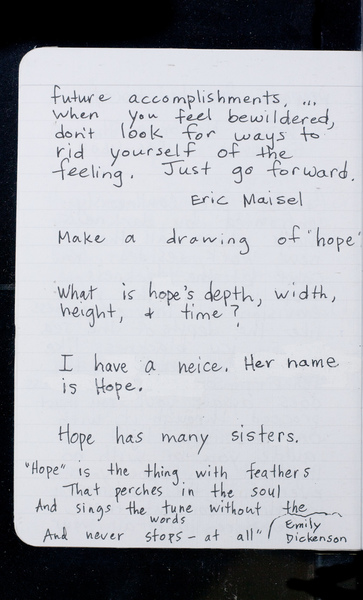 future accomplishments, ...
when you feel bewildered,
don't look for ways to
rid yourself of the
feeling. Just go forward.
Eric Maisel
Make a drawing of "hope"
What is hope's depth, width,
height, & time?
I have a neice. Her name
is Hope.
Hope has many sisters.
"Hope" is the thing with feathers
That perches in the soul
And sings the tune without the
words
And never stops - at all"
Emily
Dickenson